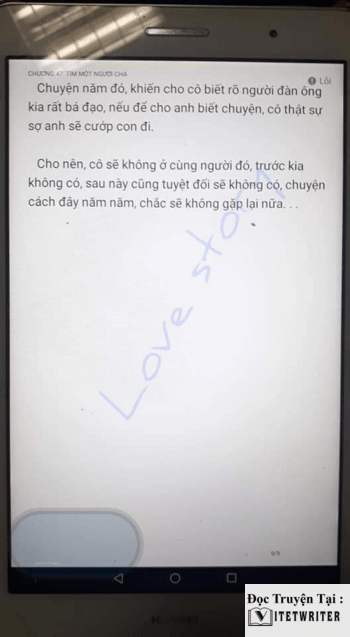 CHƯƠNG 47: TÌM MỘT NGƯỜI CHA
Lỗi
Chuyện năm đó, khiến cho cô biết rõ người đàn ông
kia rất bá đạo, nếu để cho anh biết chuyện, cô thật sự
sợ anh sẽ cướp con đi.
Cho nên, cô sẽ không ở cùng người đó, trước kia
không có, sau này cũng tuyệt đối sẽ không có, chuyện
cách đây năm năm, chắc sẽ không gặp lại nữa. . .
Love story
9/9
HUAWEI
Đọc Truyện Tại :
VITETWRITER